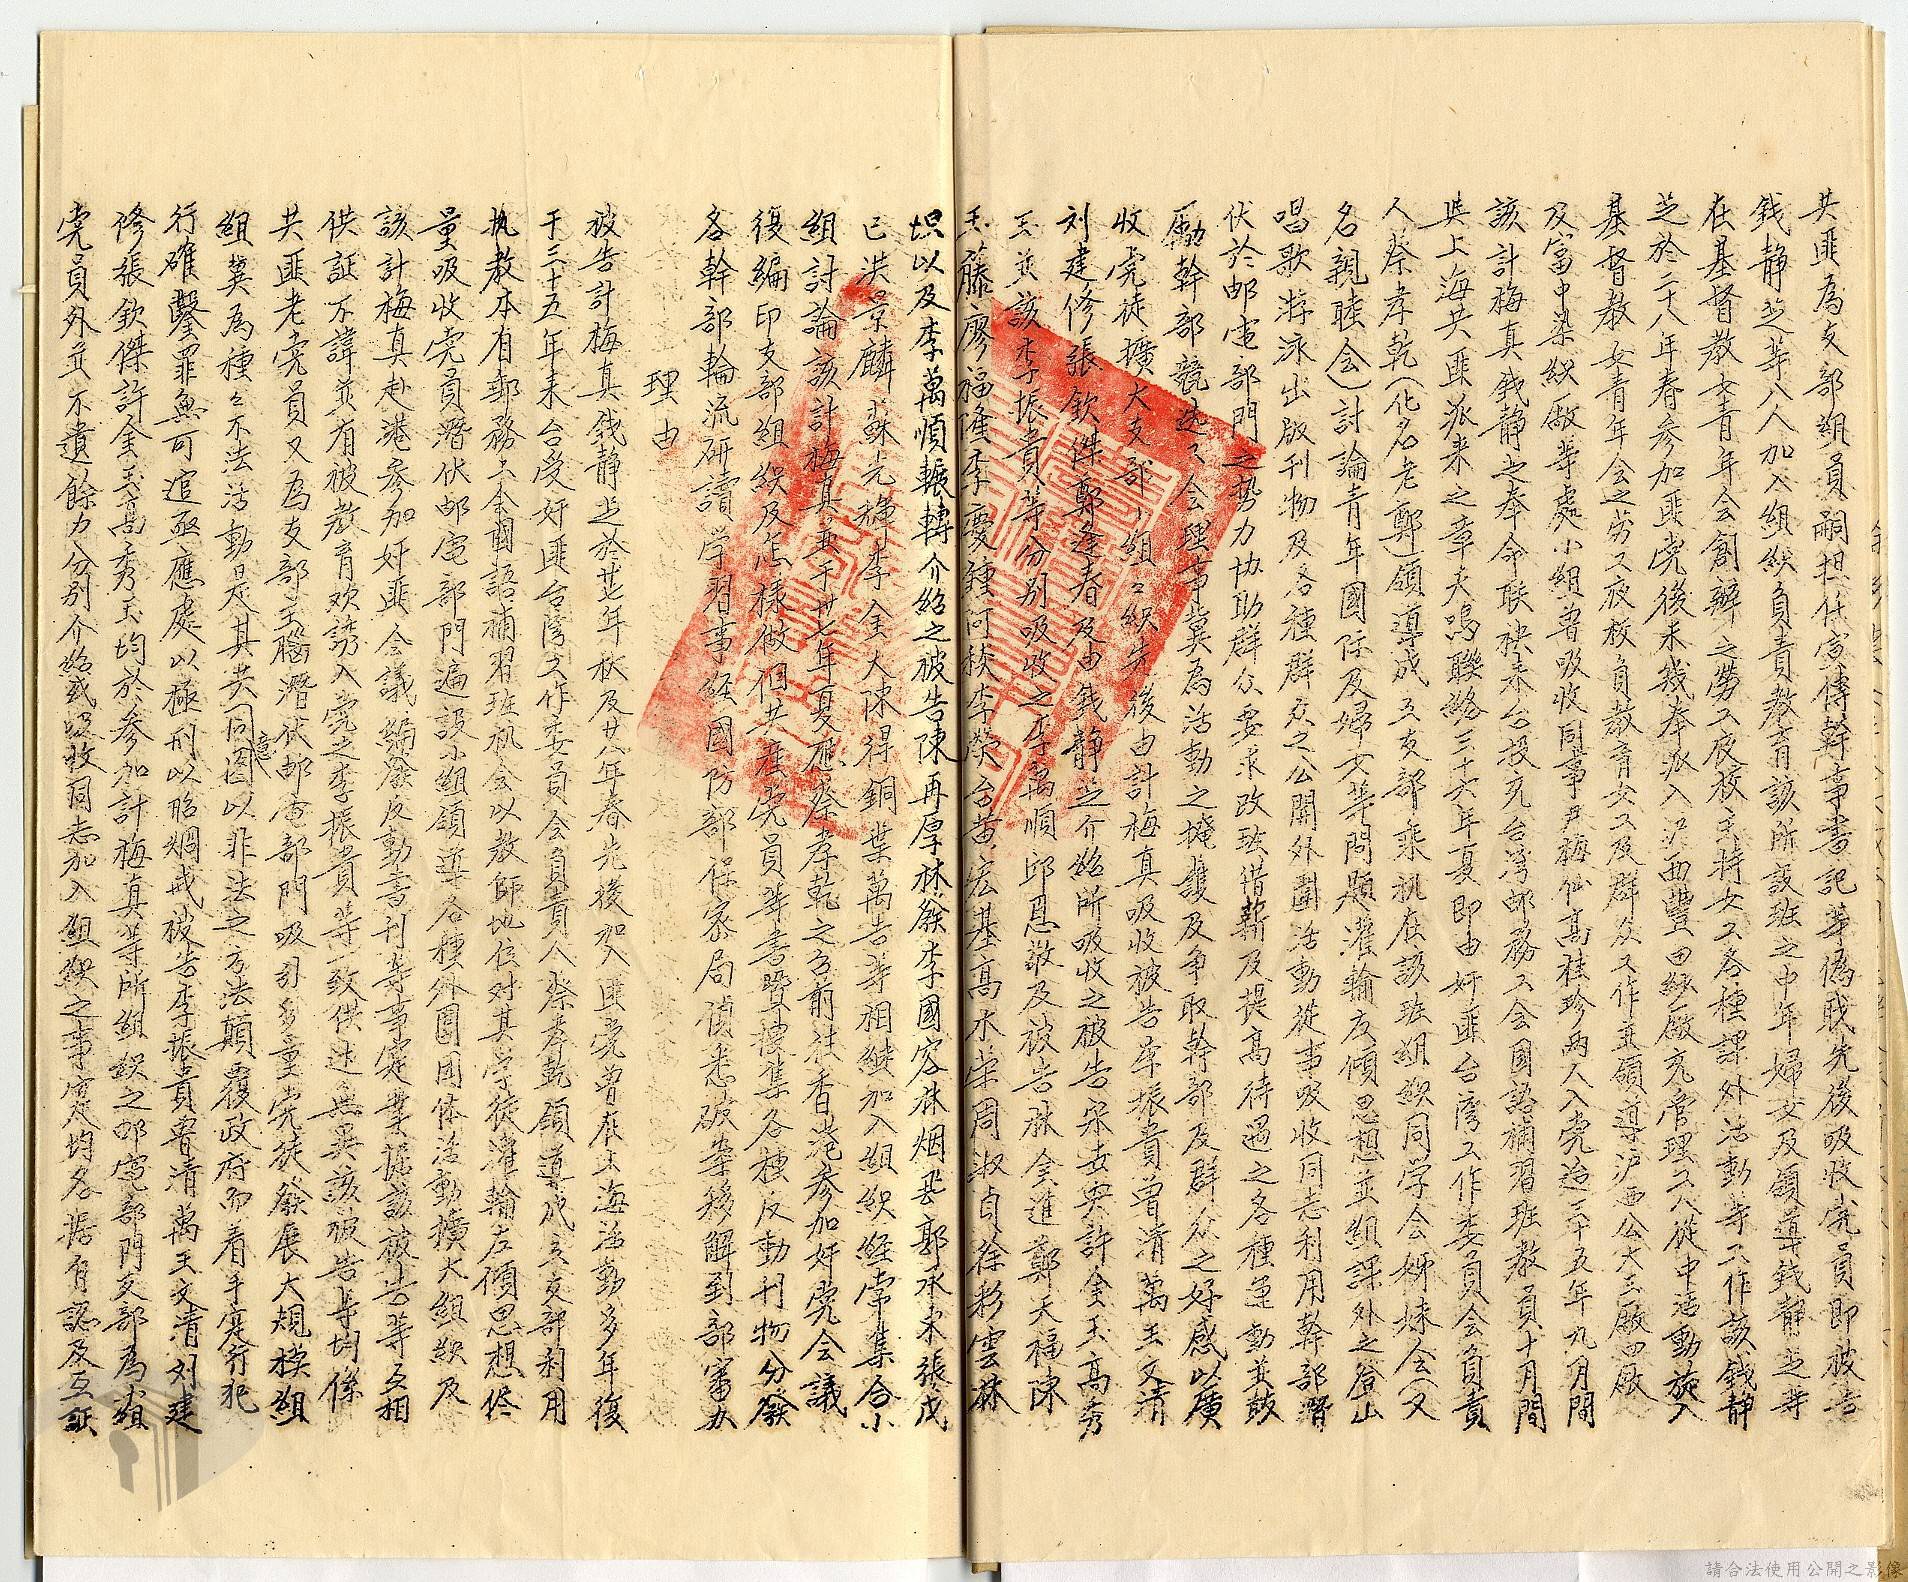 共匪為支部組員嗣担任宣傳幹事書記等偽職先後吸收党員即被告
錢靜芝等八人加入組織負責教育該所設班之中年婦女及領導錢靜芝等
在基督教女青年会創辦之勞工夜校主持女工各種課外活動等工作該錢靜
芝於二十八年春參加匪党後未幾奉派入沪西豐田紗廠充管理工人從中活動旋入
基督教女青年会之劳工夜校負教育女工及群众工作並領導沪西公大三廠四廠
及富中染織廠等處小組曾吸收同事尹梅仙高桂珍両人入党迨三十五年九月間
該計梅真錢靜芝奉命联袂来台投充台湾邮務工会國語補習班教員十月間
與上海共匪派来之章夫鳴聯絡三十六年夏即由奸匪台湾工作委員会負責
人蔡孝乾(化名老鄭)領導成立支部乘机在該班組織同学会姊妹会(又
名親睦会)討論青年國际及婦女等問題灌輸左傾思想並組課外之登山
唱歌游泳出版刊物及各種群众之公開外圍活動從事吸收同志利用幹部潛
伏於邮電部門之势力协助群众要求改班借薪及提高待遇之各種運動並鼓
勵幹部競选工会理事冀為活動之掩護及争取幹部及群众之好感以廣
收党徒擴大支部小組之織先後由計梅真吸收被告李振貴曾清萬王文清
刘建修張欽傑鄭逢春及由錢靜芝介紹所吸收之被告宋世興許金玉高秀
玉並該李振貴等分别吸收之李萬順邱恩敬及被告林金進鄭天福陳
玉藤廖福隆李慶鍾阿棱李榮台黄宏基高水荣周淑貞徐彩雲林
坦以及李萬順輾轉介紹之被告陳再厚林發李國容林烟飛郭永来張戊
已洪景麟蘇元輝李金大陳得銅葉萬吉等相繼加入組織経常集合小
組討論該計梅真並于卅七年夏應蔡孝乾之召前往香港參加奸党会議
後編印支部組織及怎樣做個共産党員等書暨搜集各種反動刊物分發
各幹部輪流研讀学習事経國防部保密局偵悉破案移解到部審办
理由
被告計梅真錢靜芝於廿七年秋及廿八年春先後加入匪党曾在上海活動多年復
于三十五年来台受奸匪台湾工作委員会負責人蔡孝乾領導成立支部利用
执教本省郵務工会國語補習班机会以教師地位对其学徒灌輸左傾思想儘
量吸收党員潛伏邮電部門遍設小組領導各種外圍团体活動擴大組織及
該計梅真赴港參加奸匪会議編發反動書刊等事實業據該被告等互相
供証不諱並有被教育欢誘入党之李振貴等一致供述無異該被告等均係
共匪老党員又為支部主腦潛伏邮電部門吸引多量党徒發展大規模組
組冀為種々不法活動是其共同意図以非法之方法顛覆政府而着手实行犯
行確鑿罪無可逭亟應處以極刑以昭烱戒被告李振貴曾清萬王文清刘建
修張欽傑許金玉高秀玉均於參加計梅真等所組織之邮電部門支部為小組
党員外並不遺餘力分别介紹或吸收同志加入組織之事实均各据自認及互証
請合法使用公開之影像